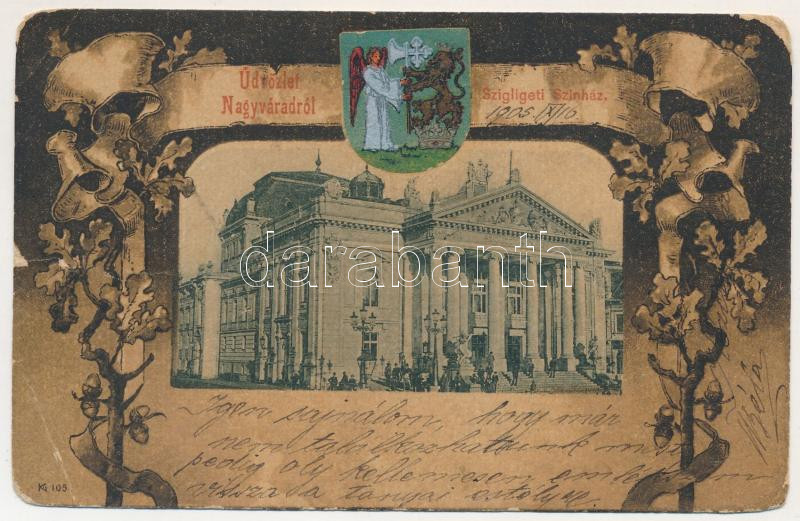 Üdvözlet
Nagyváradról
Szigligeti Szinház.
1905. IX/16
darabanth.com
Igen sajnálom, hogy már
nem találkozhattunk most
pedig oly kellemesen emlékszem
vissza a tanyai estélyre.
Béla
KG 105